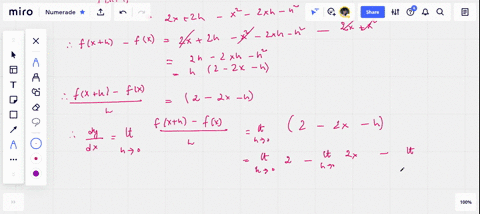 miro
Numerade
2x + 2h - x² - 2xh - h²
∴ f(x+h) - f(x) = 2x + 2h - x² - 2xh - h² - 2x + x²
= 2h - 2xh - h²
= h (2 - 2x - h)
∴ f(x+h) - f(x) / h = (2 - 2x - h)
∴ dy/dx = lt h→0 f(x+h) - f(x) / h = lt h→0 (2 - 2x - h)
= lt h→0 2 - lt h→0 2x - lt
100%